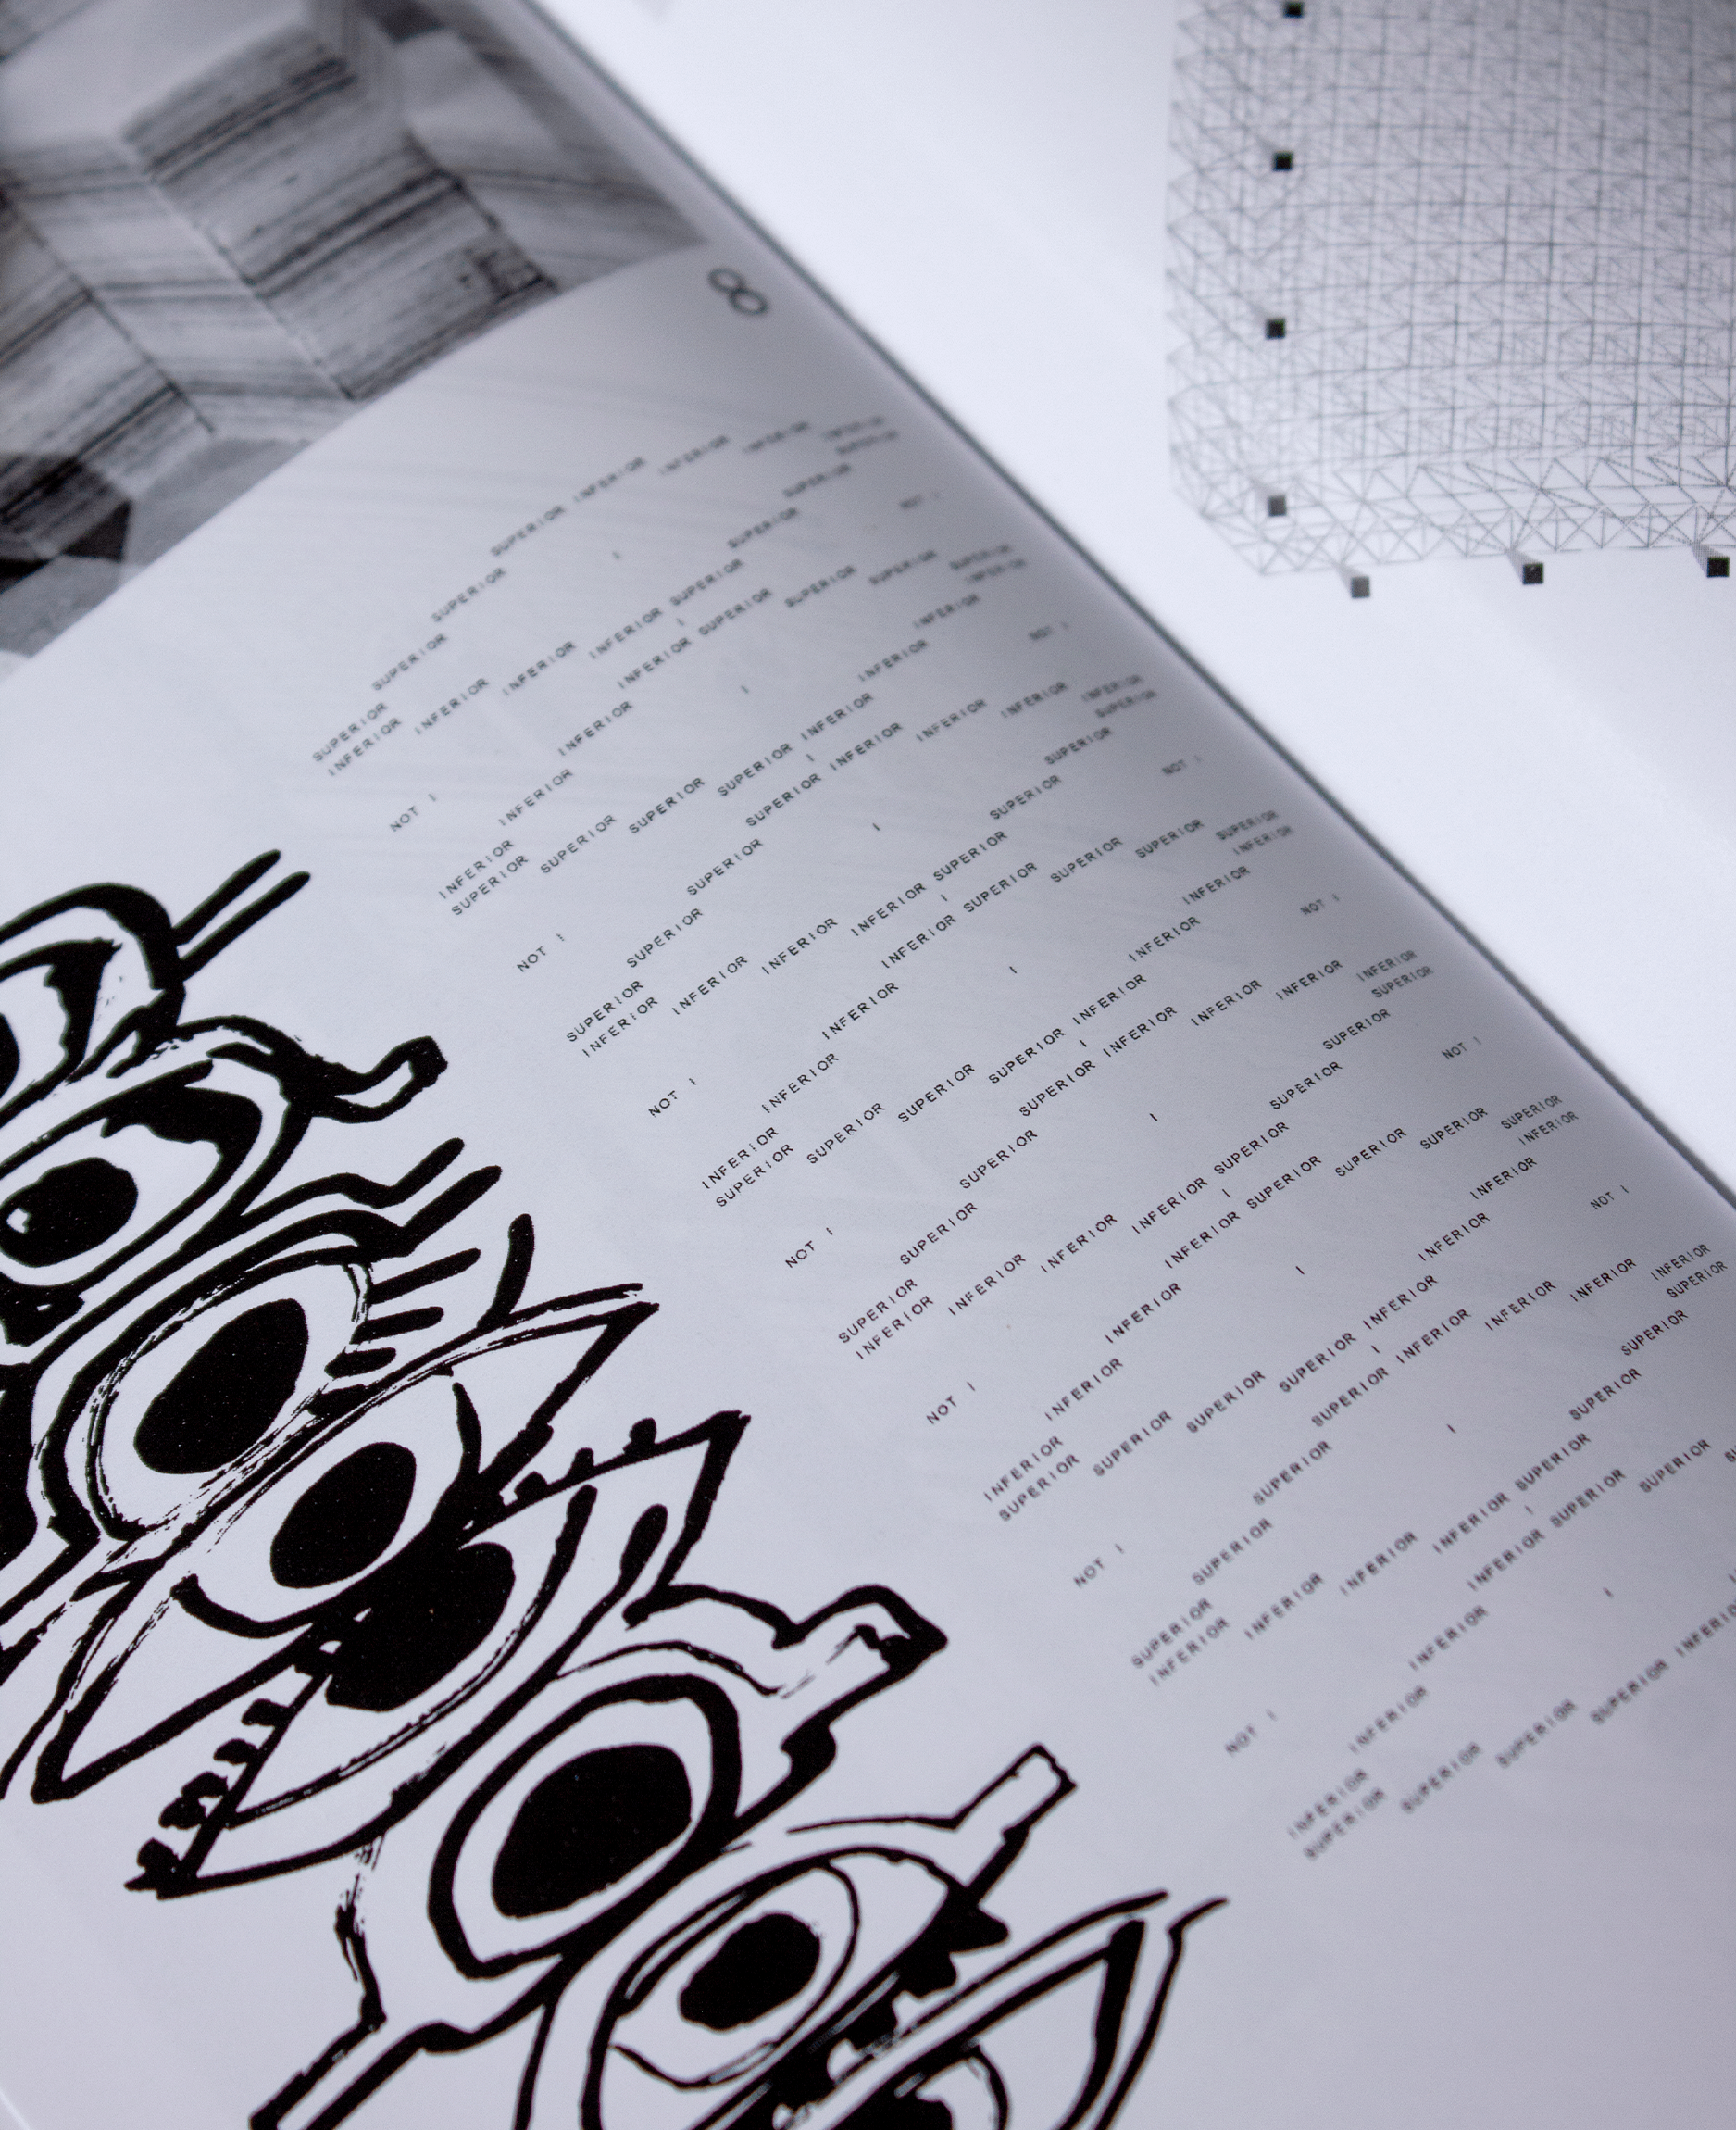 8
SUPERIOR INFERIOR
SUPERIOR INFERIOR
SUPERIOR I INFERIOR
SUPERIOR INFERIOR
INFERIOR SUPERIOR
INFERIOR SUPERIOR
INFERIOR SUPERIOR
INFERIOR SUPERIOR
NOT I I NOT I
INFERIOR SUPERIOR
INFERIOR SUPERIOR
INFERIOR I SUPERIOR
INFERIOR SUPERIOR
SUPERIOR INFERIOR
SUPERIOR INFERIOR
SUPERIOR INFERIOR
SUPERIOR INFERIOR
NOT I I NOT I
SUPERIOR INFERIOR
SUPERIOR INFERIOR
SUPERIOR I INFERIOR
SUPERIOR INFERIOR
INFERIOR SUPERIOR
INFERIOR SUPERIOR
INFERIOR SUPERIOR
INFERIOR SUPERIOR
NOT I I NOT I
INFERIOR SUPERIOR
INFERIOR SUPERIOR
INFERIOR I SUPERIOR
INFERIOR SUPERIOR
SUPERIOR INFERIOR
SUPERIOR INFERIOR
SUPERIOR INFERIOR
SUPERIOR INFERIOR
NOT I I NOT I
SUPERIOR INFERIOR
SUPERIOR INFERIOR
SUPERIOR I INFERIOR
SUPERIOR INFERIOR
INFERIOR SUPERIOR
INFERIOR SUPERIOR
INFERIOR SUPERIOR
INFERIOR SUPERIOR
NOT I I NOT I
INFERIOR SUPERIOR
INFERIOR SUPERIOR
INFERIOR I SUPERIOR
INFERIOR SUPERIOR
SUPERIOR INFERIOR
SUPERIOR INFERIOR
SUPERIOR INFERIOR
SUPERIOR INFERIOR
NOT I I NOT I
SUPERIOR INFERIOR
SUPERIOR INFERIOR
SUPERIOR I INFERIOR
SUPERIOR INFERIOR
INFERIOR SUPERIOR
INFERIOR SUPERIOR
INFERIOR SUPERIOR
INFERIOR SUPERIOR
NOT I I
INFERIOR SUPERIOR
INFERIOR SUPERIOR
INFERIOR I
INFERIOR
SUPERIOR
SUPERIOR
SUPERIOR
SUPERIOR INFERIOR